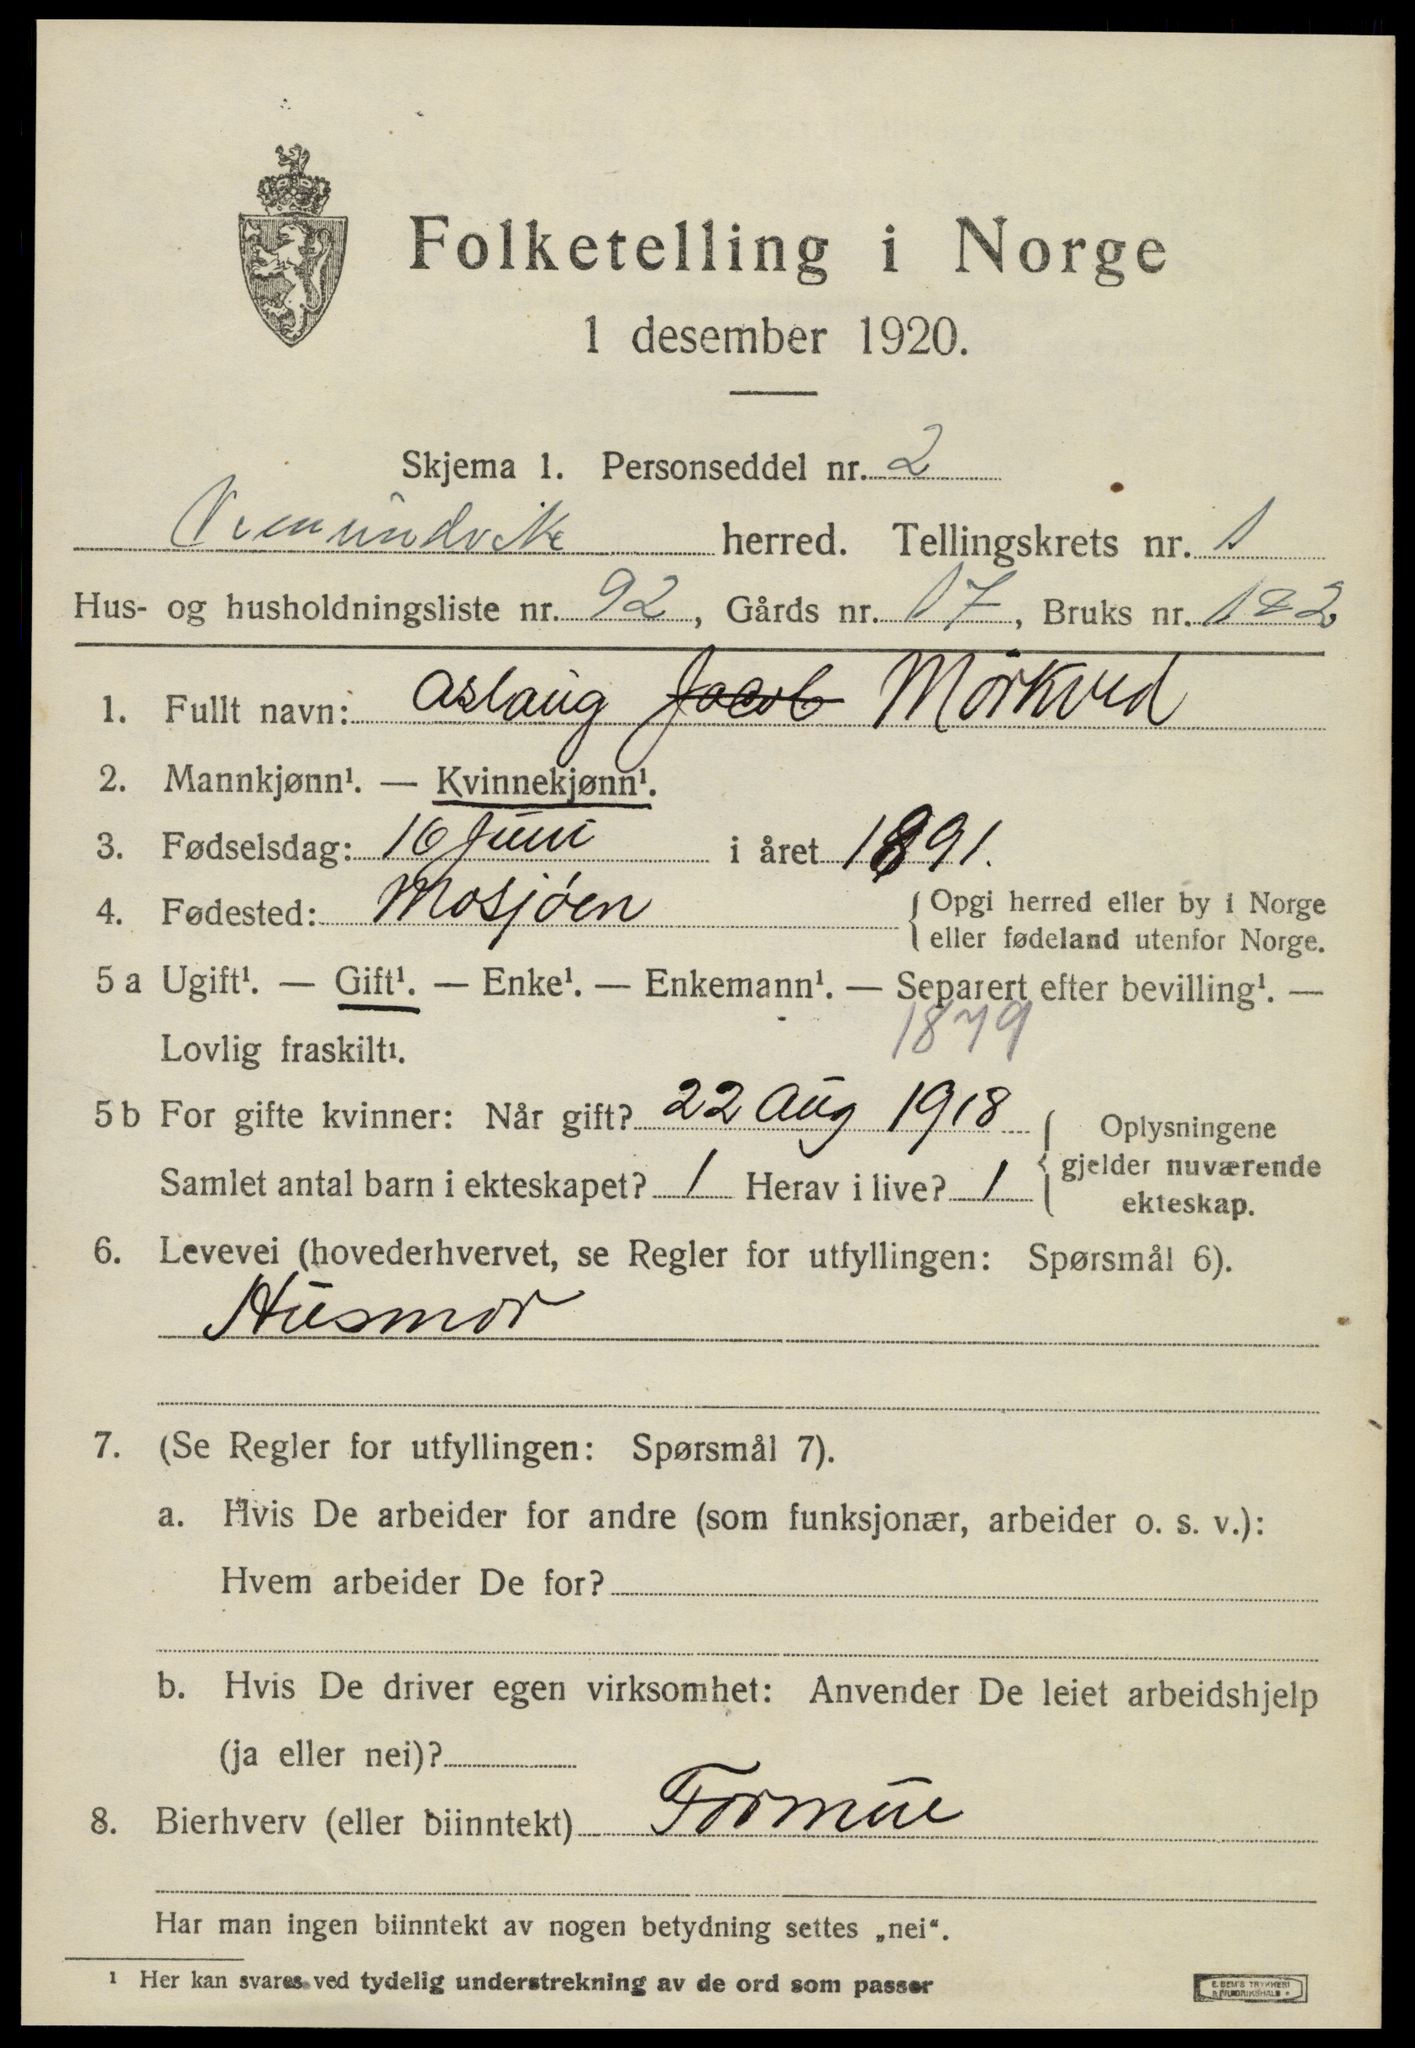 Folketelling i Norge
1 desember 1920.
Skjema 1. Personseddel nr. 2
Vemundvik herred. Tellingskrets nr. 1
Hus- og husholdningsliste nr. 92, Gårds nr. 17, Bruks nr. 122
1. Fullt navn: Aslaug Jacob Mörkved
2. Mannkjønn¹. — Kvinnekjønn¹.
3. Fødselsdag: 16 Juni i året 1891.
4. Fødested: Mosjøen { Opgi herred eller by i Norge
eller fødeland utenfor Norge.
5 a Ugift¹. — Gift¹. — Enke¹. — Enkemann¹. — Separert efter bevilling¹. —
Lovlig fraskilt¹. 1879
5 b For gifte kvinner: Når gift? 22 Aug 1918 { Oplysningene
gjelder nuværende
ekteskap.
Samlet antal barn i ekteskapet? 1 Herav i live? 1
6. Levevei (hovederhvervet, se Regler for utfyllingen: Spørsmål 6).
Husmor
7. (Se Regler for utfyllingen: Spørsmål 7).
a. Hvis De arbeider for andre (som funksjonær, arbeider o. s. v.):
Hvem arbeider De for?
b. Hvis De driver egen virksomhet: Anvender De leiet arbeidshjelp
(ja eller nei)?
8. Bierhverv (eller biinntekt) Formue
Har man ingen biinntekt av nogen betydning settes „nei“.
¹ Her kan svares ved tydelig understrekning av de ord som passer
E. SEM'S TRYKKERI
FREDRIKSHALD